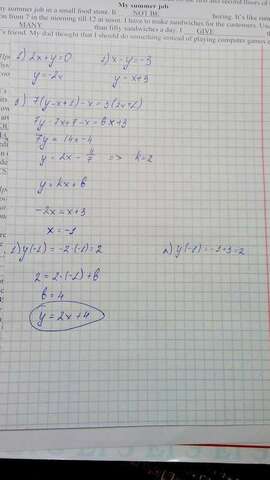 My summer job
my summer job in a small food store. It NOT BE boring. It's like
from 7 in the morning till 12 at noon. I have to make sandwiches for the customers. I
MANY than fifty sandwiches a day. I GIVE
's friend. My dad thought that I should do something instead of playing computer games
1) 2x+y=0 2) x-y=-3
y=-2x y=x+3
3) 7(y-x+1)-x=
7y
7y=14x-4
y=2x-4/7 => k=2
y=kx+b
-2x=x+3
x=-1
1) y(-1)=-2·(-1)=2 2) y(-1)=-1+3=2
2=2·(-1)+b
b=4
y=2x+4